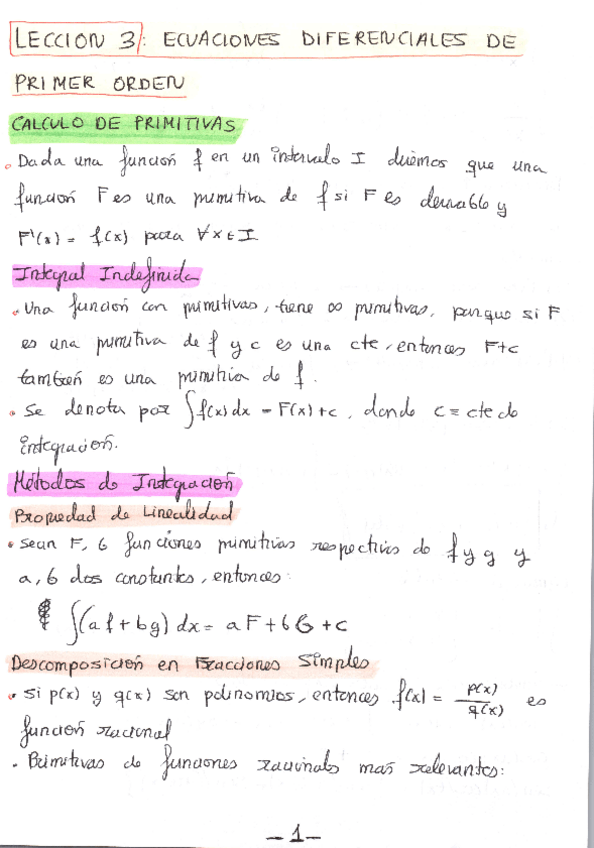 LECCION 3: ECUACIONES DIFERENCIALES DE
PRIMER ORDEN
CALCULO DE PRIMITIVAS
• Dada una función f en un intervalo I diremos que una
función F es una primitiva de f si F es derivable y
F'(x) = f(x) para ∀x∈I
Integral Indefinida
• Una función con primitivas, tiene ∞ primitivas, porque si F
es una primitiva de f y c es una cte, entonces F+c
también es una primitiva de f.
• Se denota por ∫f(x)dx = F(x)+c, donde c = cte de
integración.
Métodos de Integración
Propiedad de Linealidad
• Sean F, G funciones primitivas respectivas de f y g y
a, b dos constantes, entonces:
∫(af+bg)dx = aF+bG+c
Descomposición en Fracciones Simples
• Si p(x) y q(x) son polinomios, entonces f(x) = p(x)/q(x) es
función racional
• Primitivas de funciones racionales mas relevantes:
-1-